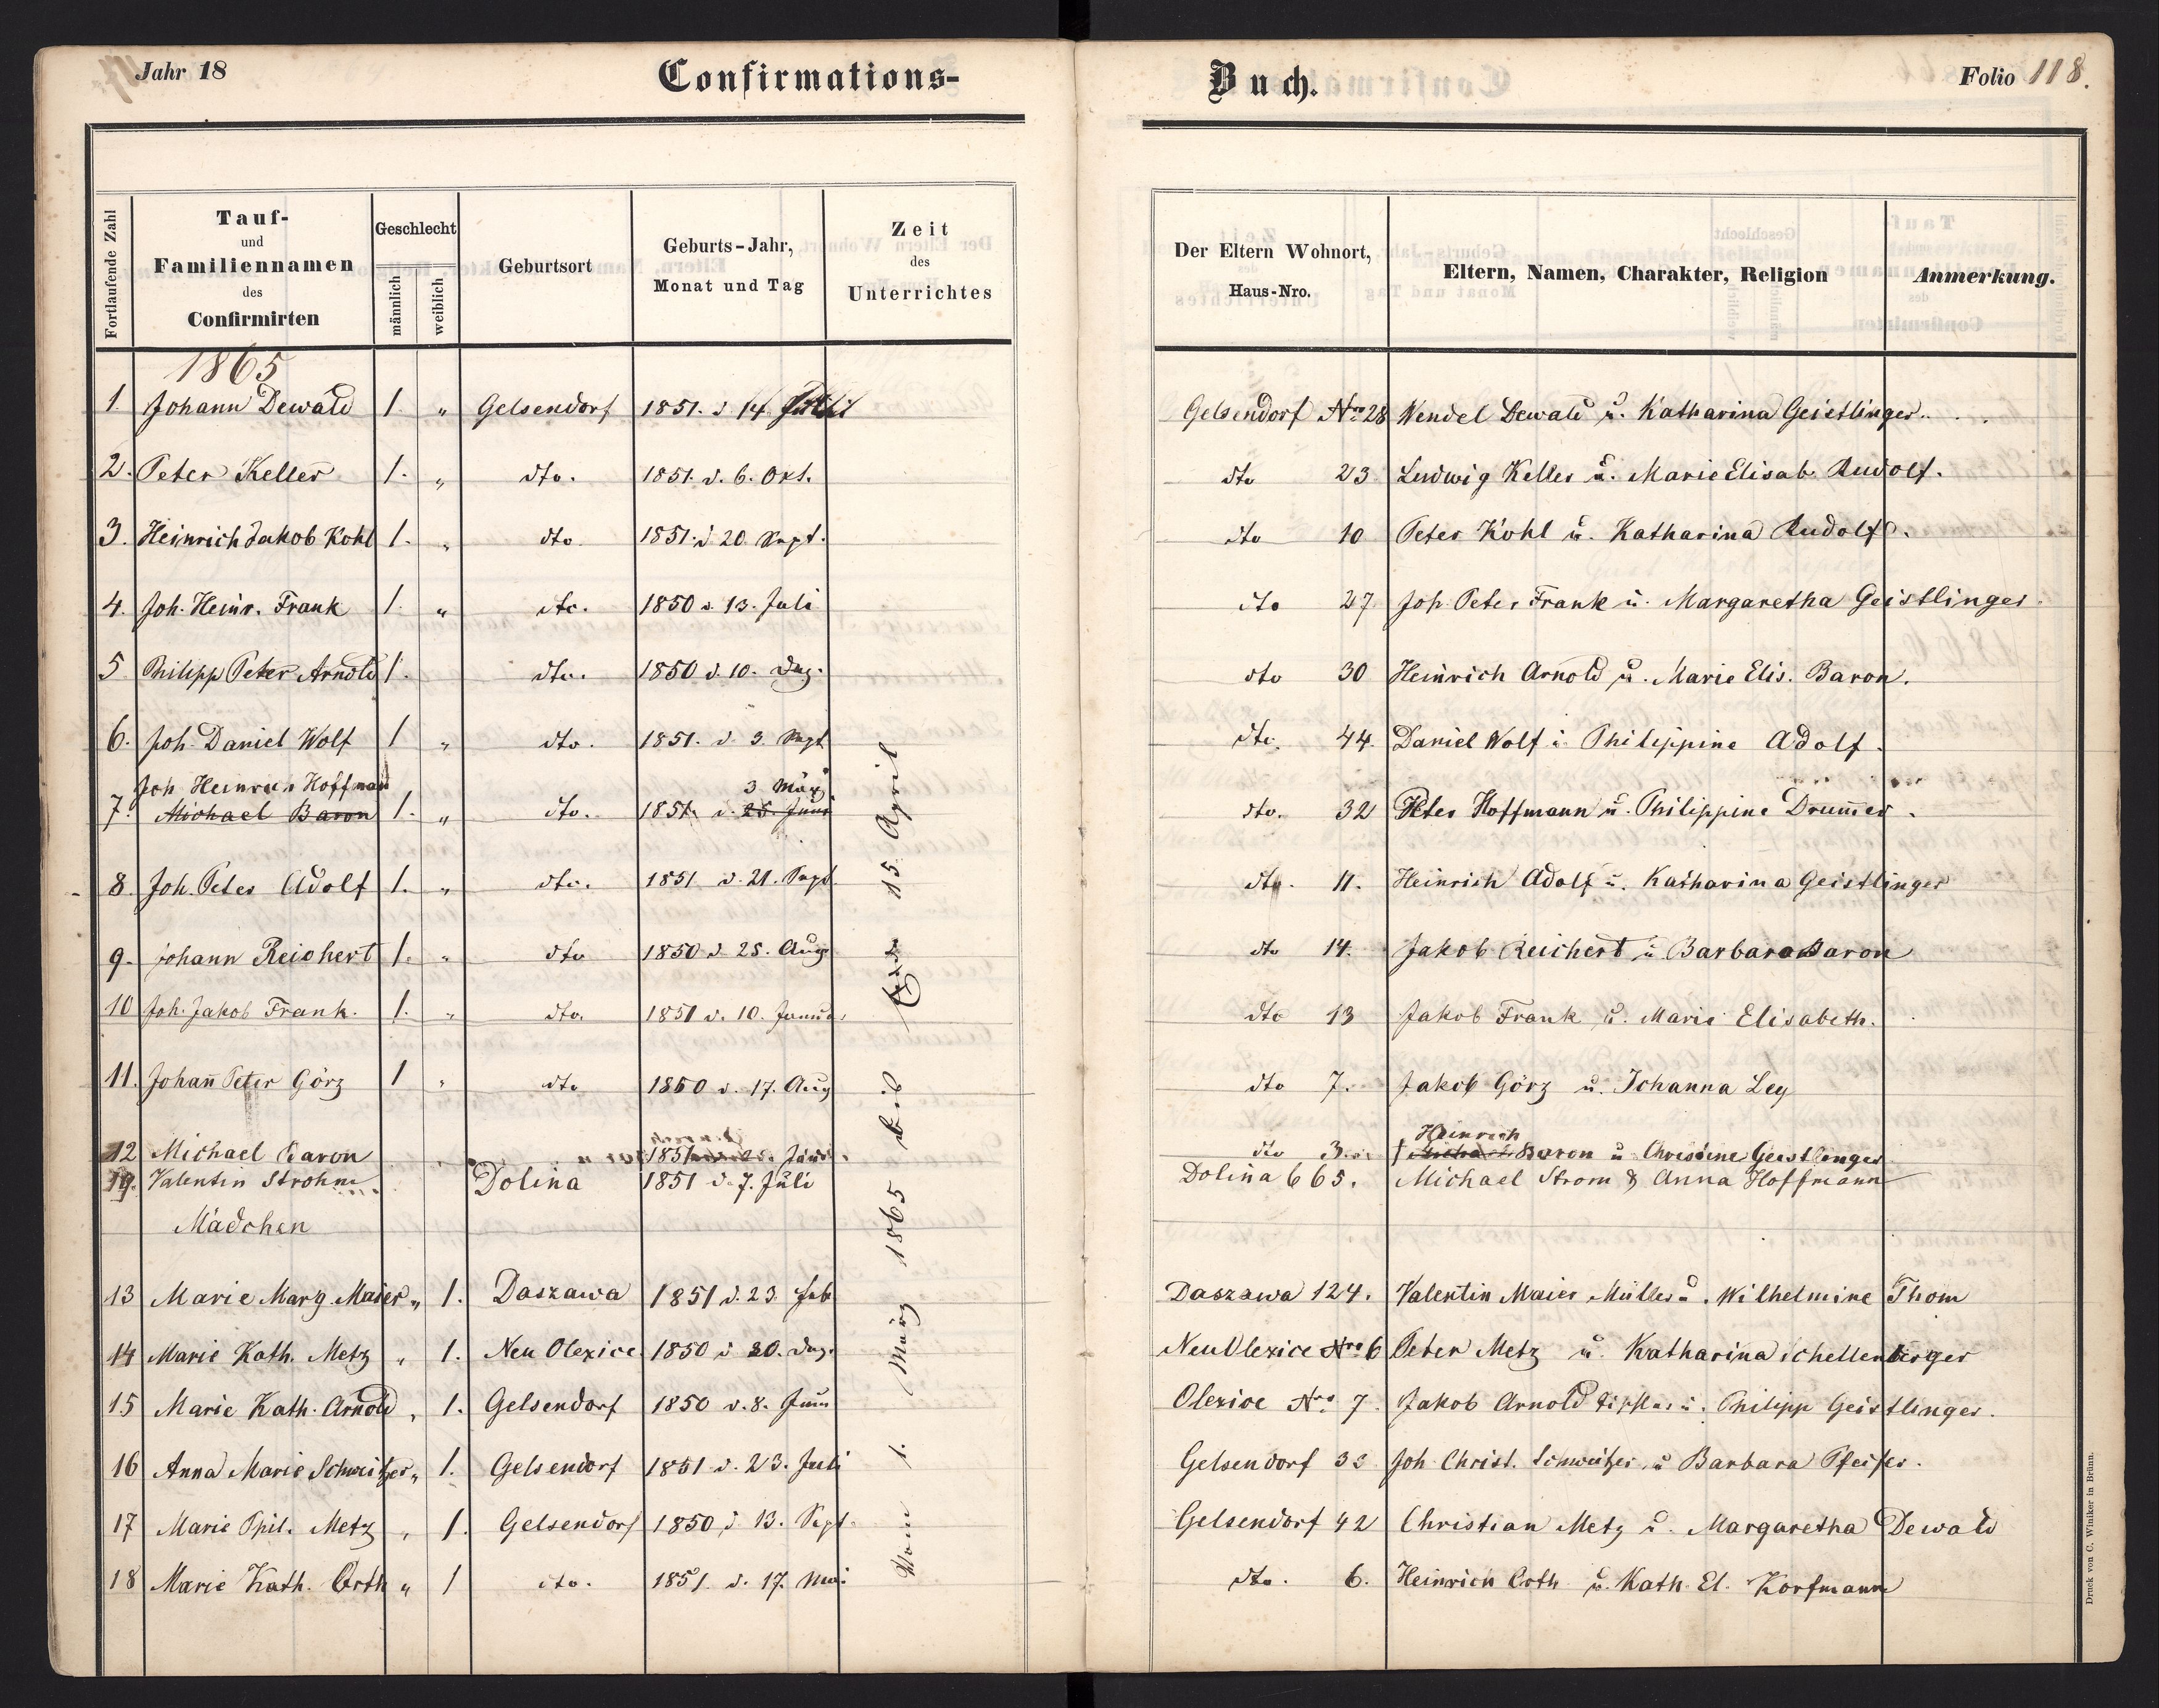 Jahr 18 Confirmations-
Buch. Folio 118.
Fortlaufende Zahl
Tauf-
und
Familiennamen
des
Confirmirten
Geschlecht
männlich
weiblich
Geburtsort
Geburts-Jahr,
Monat und Tag
Zeit
des
Unterrichtes
Der Eltern Wohnort,
Haus-Nro.
Eltern, Namen, Charakter, Religion
Anmerkung.
1865
1. Johann Dewald 1. " Gelsendorf 1851. d. 14. Gelsendorf Nro 28 Wendel Dewald u. Katharina Geistlinger.
2. Peter Keller 1. " dto. 1851. d. 6. Okt. dto 23 Ludwig Keller u. Marie Elisab. Rudolf.
3. Heinrich Jakob Kohl 1. " dto 1851. d. 20. Sept. dto 10 Peter Kohl u. Katharina Rudolf.
4. Joh. Heinr. Frank 1. " dto. 1850 d. 13. Juli dto 27 Joh. Peter Frank u. Margaretha Geistlinger.
5 Philipp Peter Arnold 1. dto. 1850 d. 10. Dez. dto 30 Heinrich Arnold u. Marie Elis. Baron.
6. Joh. Daniel Wolf 1 " dto. 1851. d. 3. Sept. dto. 44. Daniel Wolf u. Philippine Adolf.
Joh Heinrich Hoffmann 3 März
7. Michael Baron 1. " dto. 1851. d. 25. Juni dto. 32 Peter Hoffmann u. Philippine Drum̄er.
8. Joh. Peter Adolf 1. " dto. 1851 d. 21. Sept. dto. 11. Heinrich Adolf u. Katharina Geistlinger
9. Johann Reichert 1. " dto 1850 d. 25. Aug. dto 14. Jakob Reichert u. Barbara Baron
10 Joh. Jakob Frank. 1. " dto. 1851 d. 10. Januar dto 13 Jakob Frank u. Marie Elisabeth.
11. Johan̄ Peter Görz 1 " dto 1850 d. 17. Aug dto 7. Jakob Görz u. Johanna Ley
Heinrich
12 Michael Baron 1851 Juni dto 3. † Michael Baron u. Christine Geistlinger
19. Valentin Strohm Dolina 1851 d. 7. Juli Dolina 665. Michael Strom & Anna Hoffmann
Mädchen
13 Marie Marg. Maier " 1. Daszawa 1851 d. 23. Feb Daszawa 124. Valentin Maier Müller u. Wilhelmine Thom
14 Marie Kath. Metz " 1. Neu Olexice 1850 d. 20. Dez. Neu Olexice Nro 6 Peter Metz u. Katharina Schellenberger
15 Marie Kath. Arnold " 1. Gelsendorf 1850 d. 8. Juni Olexice Nro 7. Jakob Arnold u. Philipp Geistlinger.
16 Anna Marie Schweitzer " 1. Gelsendorf 1851 d. 23. Juli Gelsendorf 33 Joh. Christ. Schweitzer u. Barbara Pfeifer.
17 Marie Phil. Metz " 1. Gelsendorf 1850 d. 13. Sept. Gelsendorf 42 Christian Metz u. Margaretha Dewald
18 Marie Kath. Orth " 1 dto. 1851. d. 17. Mai dto. 6. Heinrich Orth u. Kath. El. Korfmann
Vom 1. März 1865 bis 15 April
Druck von C. Winiker in Brünn.